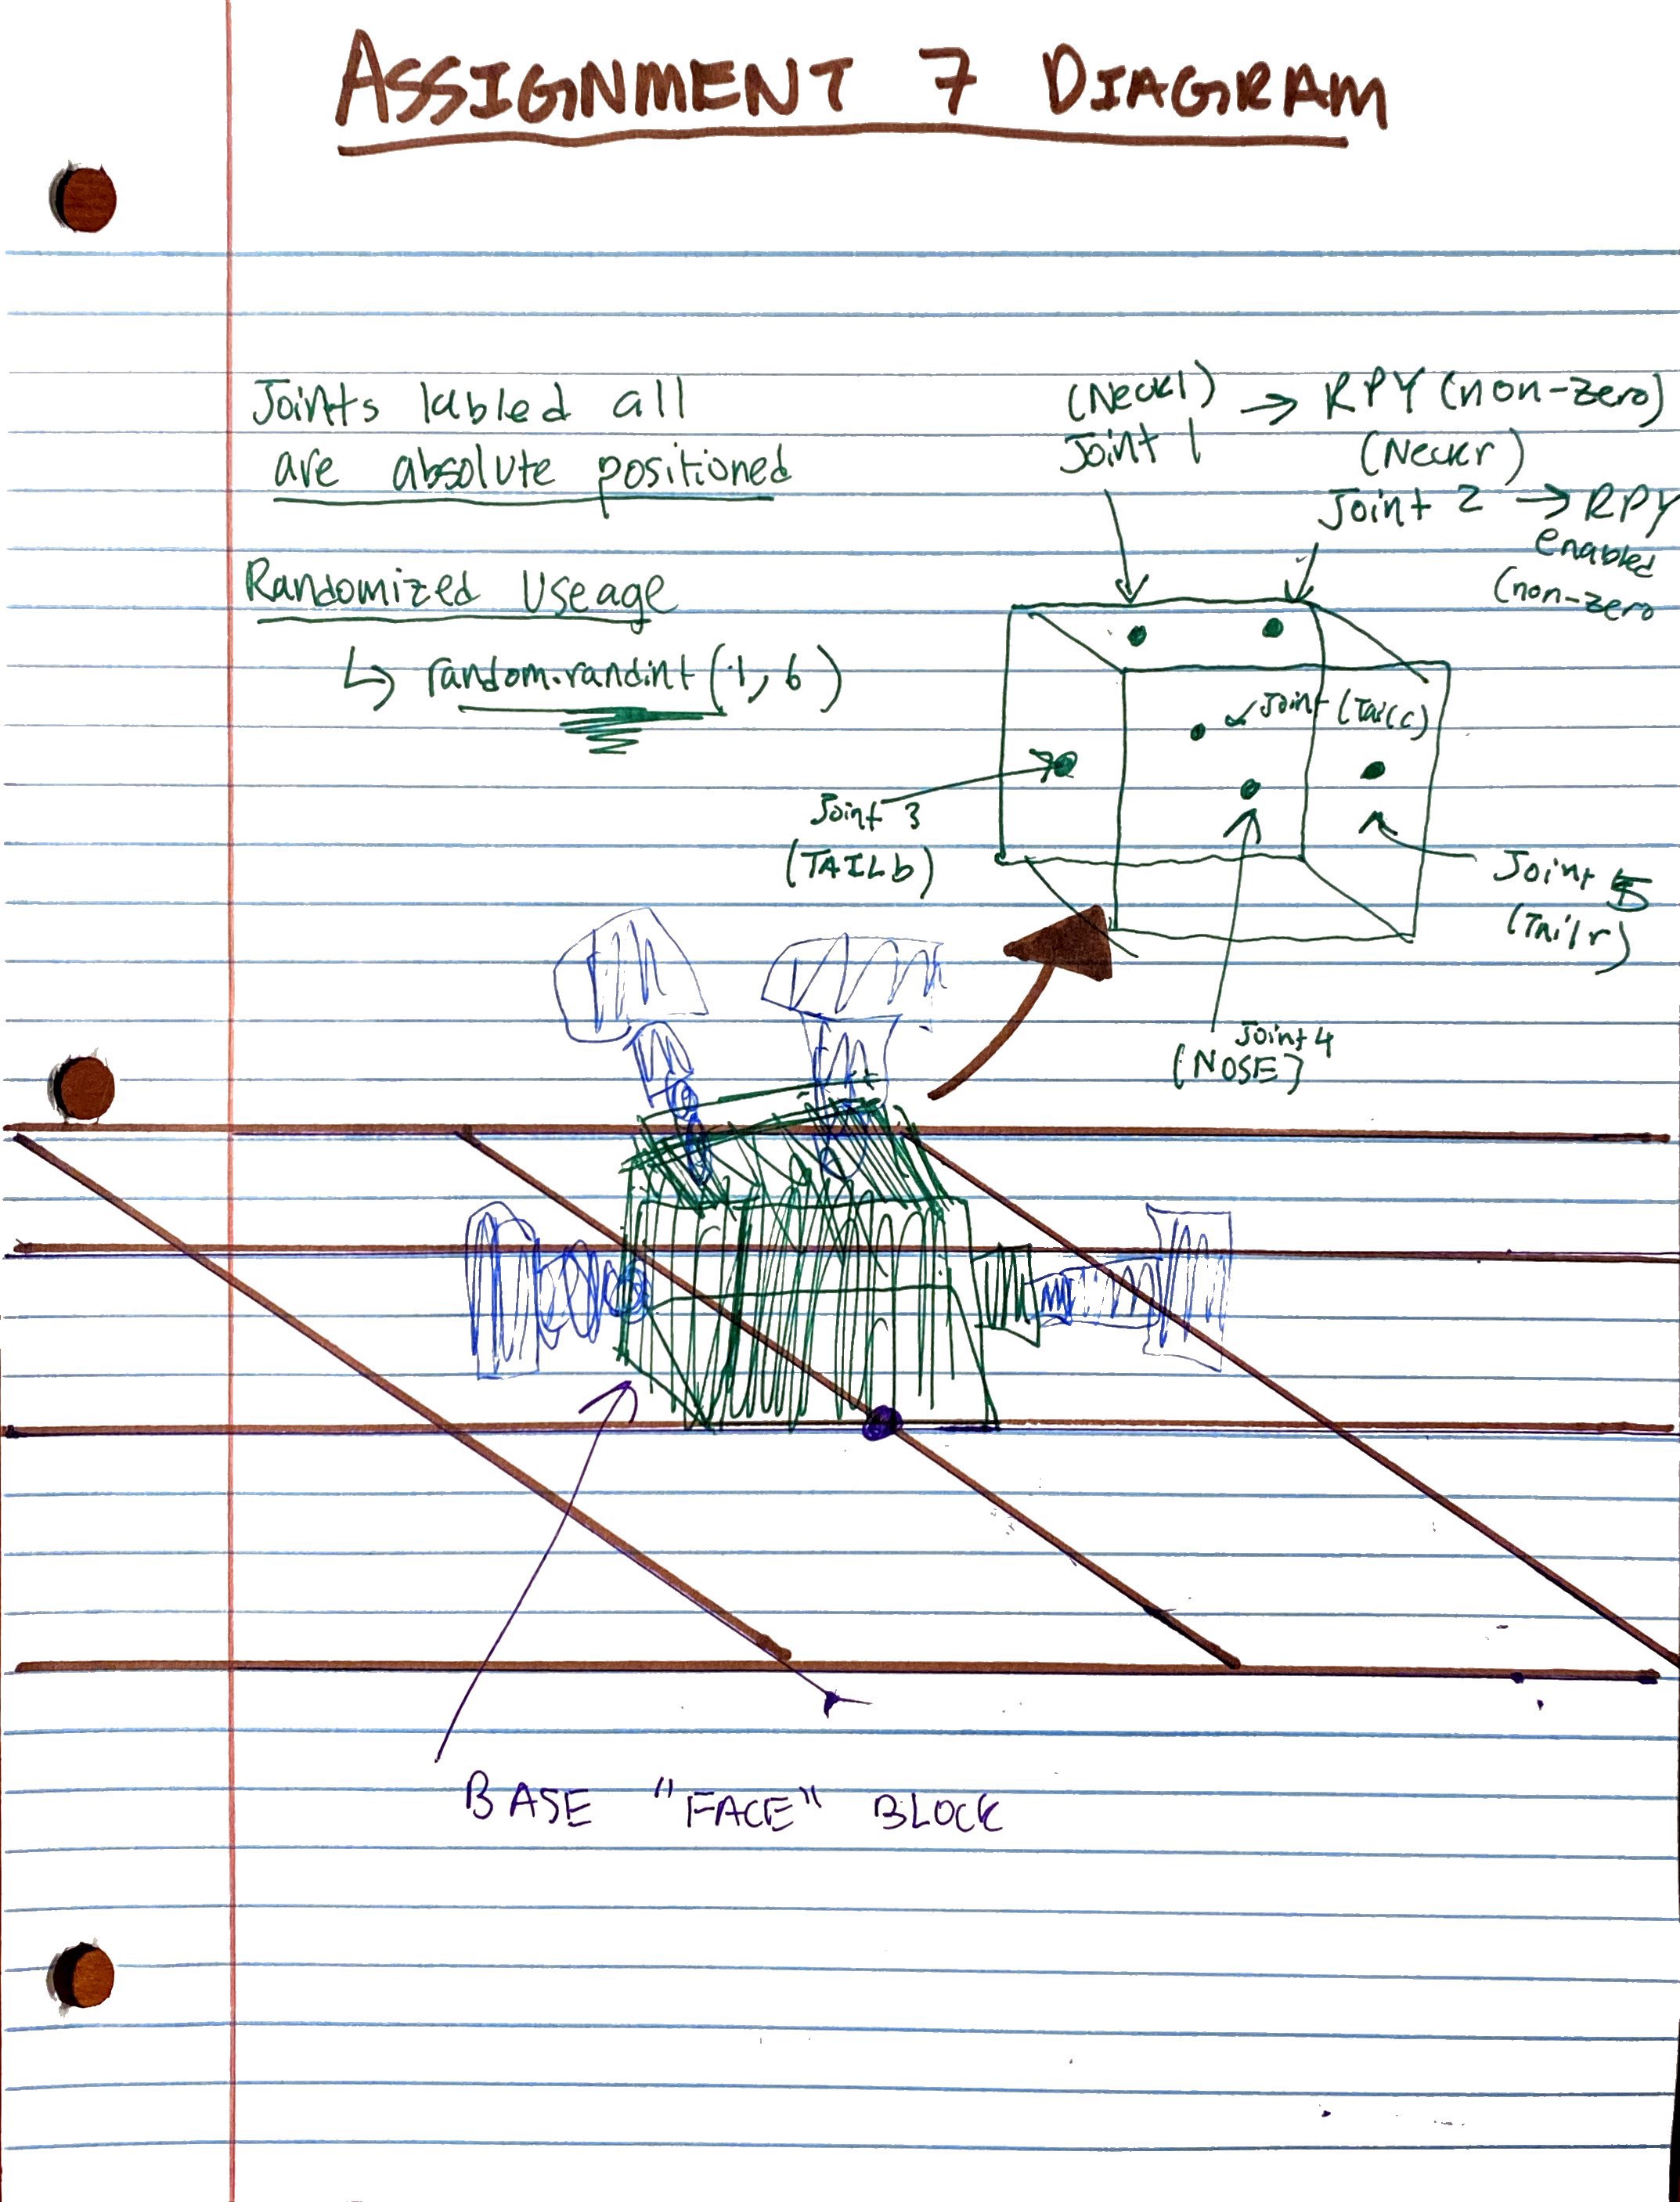 ASSIGNMENT 7 DIAGRAM
Joints labled all
are absolute positioned
Randomized Useage
↳ random.randint(1, 6)
(Neckl) → RPY (non-zero)
Joint 1
(Neckr)
Joint 2 → RPY
enabled
(non-zero
Joint (Tailc)
Joint 3
(TAILb)
Joint 5
(Tailr)
Joint 4
(NOSE)
BASE "FACE" BLOCK